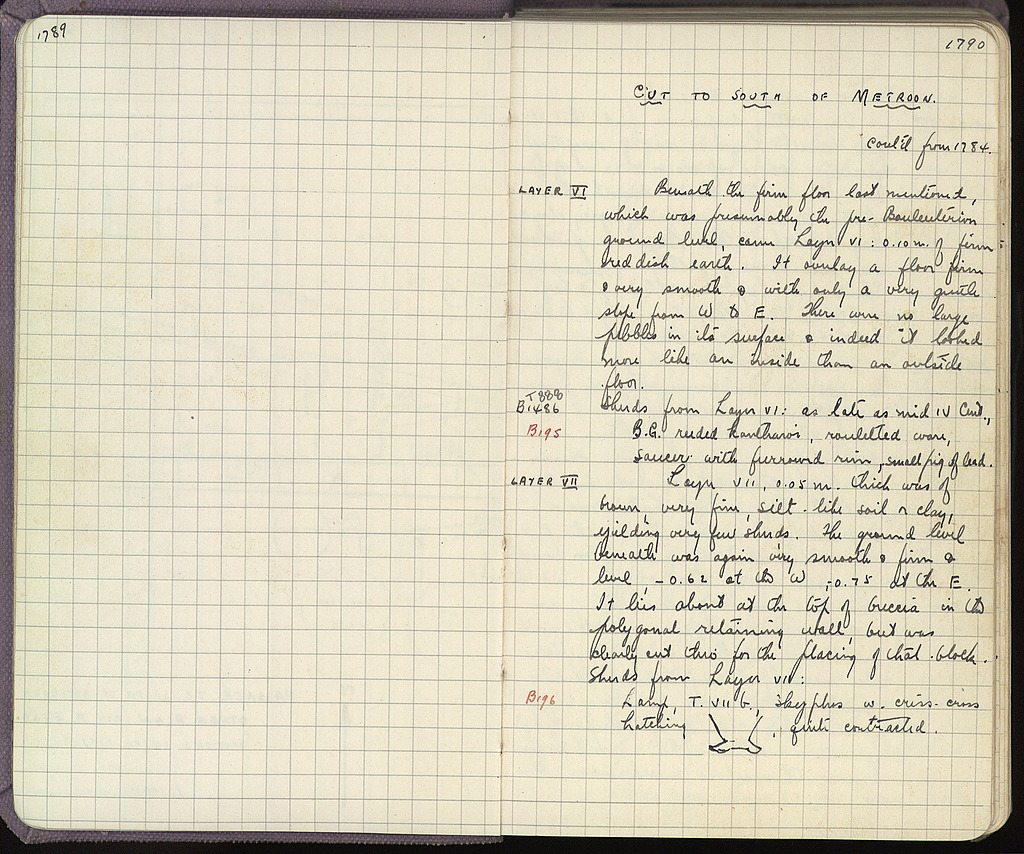 1789
1790
CUT TO SOUTH OF METROON.
Cont'd from 1784.
LAYER VI Beneath the firm floor last mentioned,
which was presumably the pre-Bouleuterion
ground level, came Layer VI: 0.10 m. of firm
reddish earth. It overlay a floor firm
& very smooth & with only a very gentle
slope from W to E. There were no large
pebbles in its surface & indeed it looked
more like an inside than an outside
floor.
T888
B1486 Sherds from Layer VI: as late as mid IV Cent.,
B195 B.G. reeded kantharoi, rouletted ware,
saucer with furrowed rim, small pig of lead.
LAYER VII Layer VII, 0.05 m. thick was of
brown, very firm, silt-like soil or clay,
yielding very few sherds. The ground level
beneath was again very smooth & firm &
level, -0.62 at the W, -0.75 at the E.
It lies about at the top of breccia in the
polygonal retaining wall, but was
clearly cut thro for the placing of that block.
Sherds from Layer VII:
B196 Lamp, T. VII b, skyphos w. criss-cross
hatching, quite contracted.